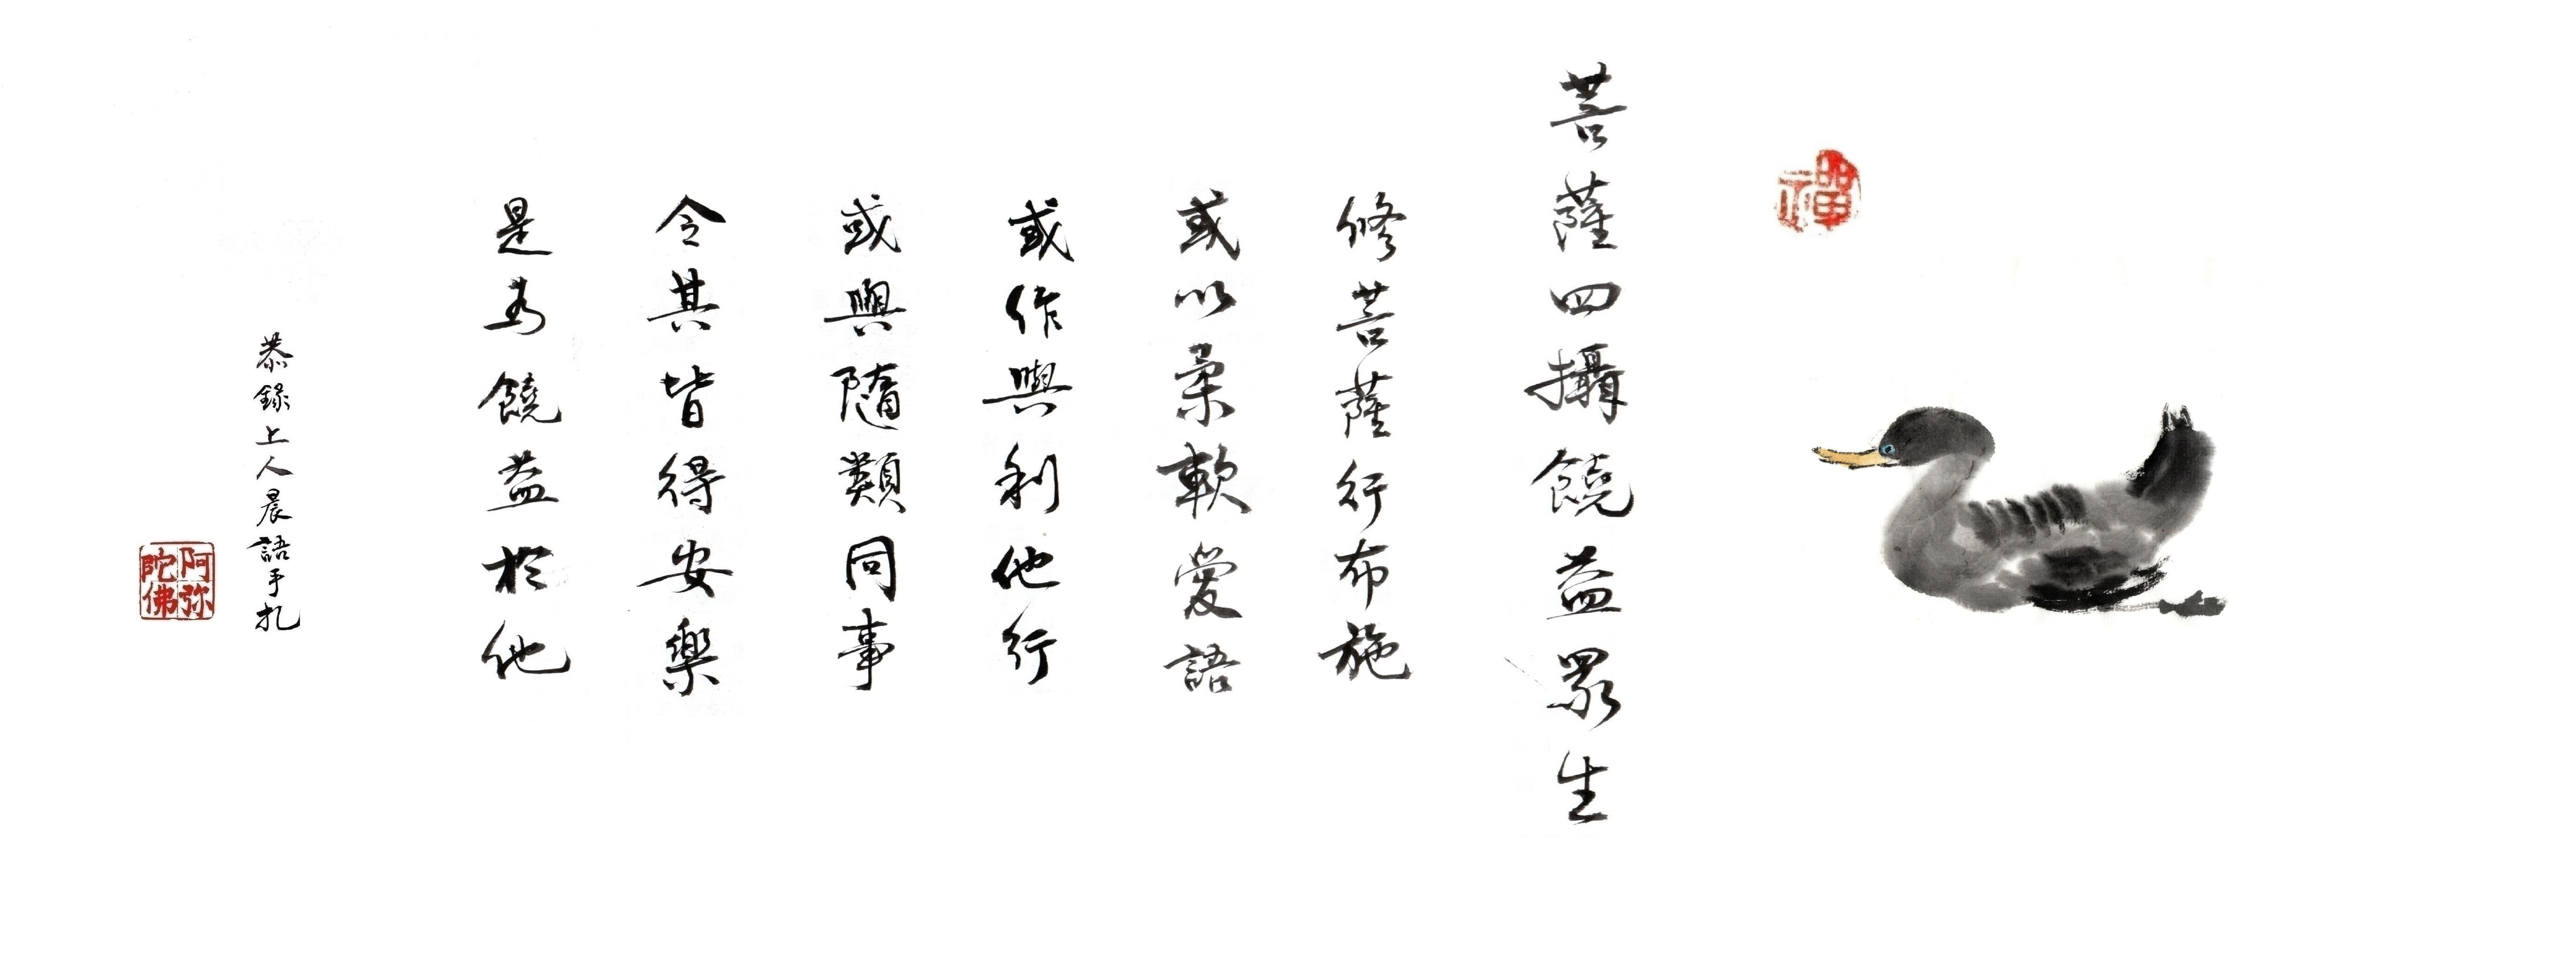 禪
菩薩四攝饒益眾生
修菩薩行布施
或以柔軟愛語
或作與利他行
或與隨類同事
令其皆得安樂
是為饒益於他
恭錄上人晨語手札
阿弥陀佛